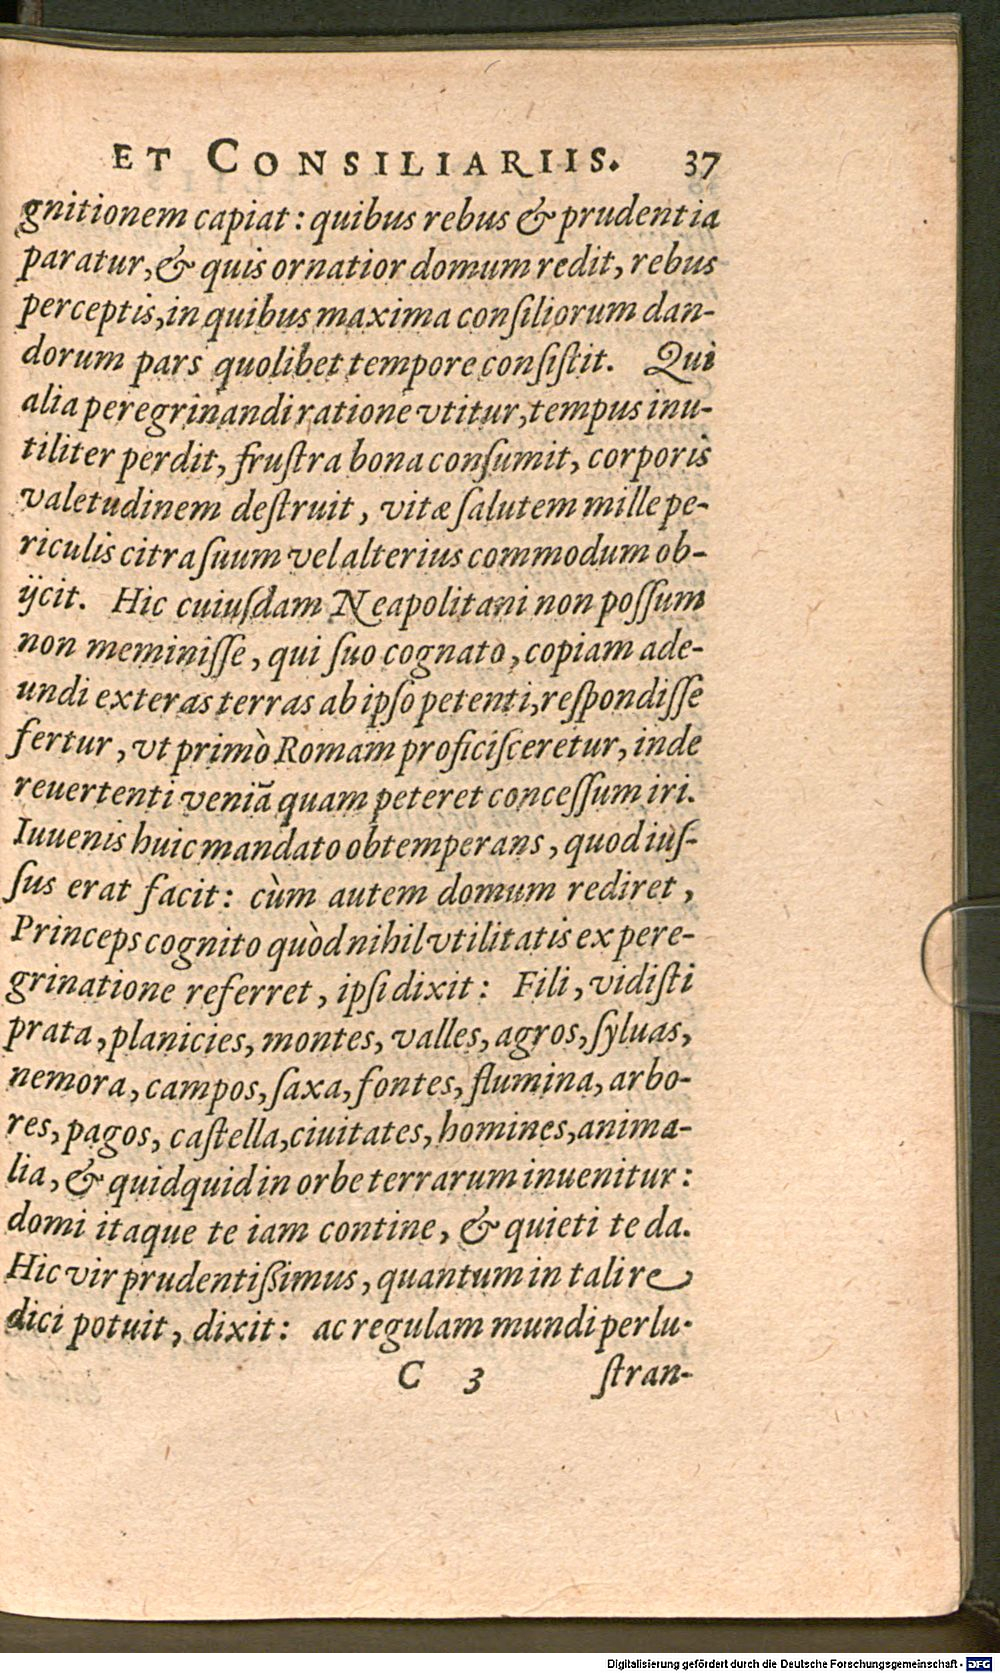 ET CONSILIARIIS. 37
gnitionem capiat: quibus rebus & prudentia
paratur, & quis ornatior domum redit, rebus
perceptis, in quibus maxima conſiliorum dan-
dorum pars quolibet tempore conſiſtit. Qui
alia peregrinandi ratione vtitur, tempus inu-
tiliter perdit, fruſtra bona conſumit, corporis
valetudinem deſtruit, vitæ ſalutem mille pe-
riculis citra ſuum vel alterius commodum ob-
ijcit. Hic cuiuſdam Neapolitani non poſſum
non meminiſſe, qui ſuo cognato, copiam ade-
undi exteras terras ab ipſo petenti, reſpondiſſe
fertur, vt primò Romam proficiſceretur, inde
reuertenti veniā quam peteret conceſſum iri.
Iuuenis huic mandato obtemperans, quod iuſ-
ſus erat facit: cùm autem domum rediret,
Princeps cognito quòd nihil vtilitatis ex pere-
grinatione referret, ipſi dixit: Fili, vidiſti
prata, planicies, montes, valles, agros, ſyluas,
nemora, campos, ſaxa, fontes, flumina, arbo-
res, pagos, caſtella, ciuitates, homines, anima-
lia, & quidquid in orbe terrarum inuenitur:
domi itaque te iam contine, & quieti te da.
Hic vir prudentißimus, quantum in tali re
dici potuit, dixit: ac regulam mundi perlu-
C 3 ſtran-
Digitalisierung gefördert durch die Deutsche Forschungsgemeinschaft - DFG